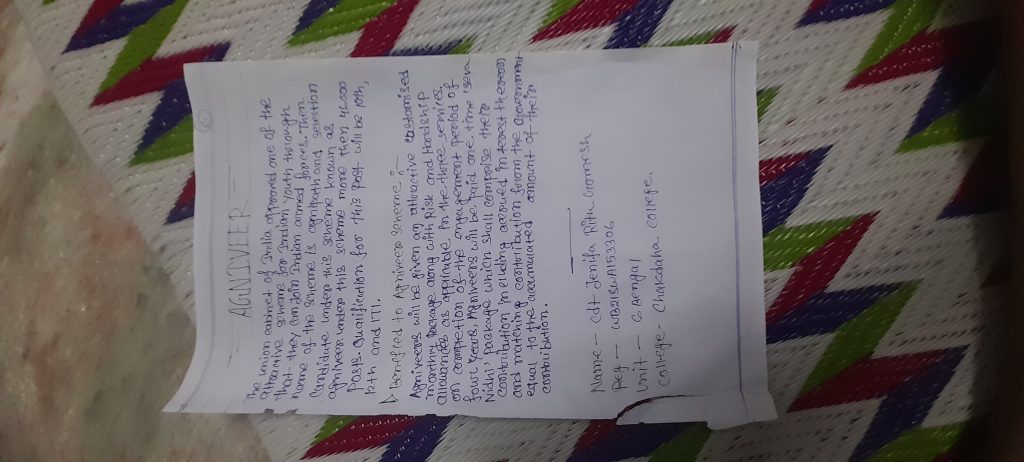 AGNIVEER
The union cabinet of India approved one of the
attractive scheme for Indian youth through
that they can join Indian armed forces. Then
name of the scheme is agnipath and selection
Candidate under this scheme known as
agniveer. under this scheme more then 46.000
Posts. Qualification for this Post will be 10th,
12th and ITI.
Agniveers will be given an attractive customised
monthly package along with Risk and Hardship
allowances as applicable in the three services,
on completion of the engagement period of
four years, Agniveers will be paid one time seva
Nidhi package which shall comprise their
contribution including accrued interest thereon
and matching contribution from the Government
equal to the accumulated amount of their
contribution.
Name - Cdt Jenifa Rita Gomesh
Reg - WB21SWA153306
Unit - 6 Bengal
College - Chakdaha College.